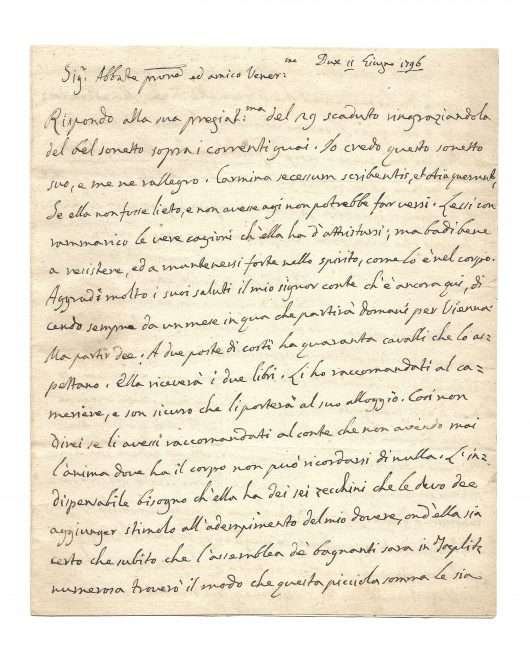 Dux 11 Giugno 1796
Sig.r Abbate ed amico Vener.me
Rispondo alla sua pregiat.ma del 29 scaduto ringraziandola
del bel sonetto sopra i correnti guai. Io credo questo sonetto
suo, e me ne rallegro. Carmina secessum scribentis, et otia quaerunt,
Se ella non fusse lieto, e non avesse agi non potrebbe far versi. Lessi con
rammarico le vere cagioni ch'ella ha d'attristarsi; ma badi bene
a resistere, ed a mantenersi forte nello spirito, come lo è nel corpo.
Aggradì molto i suoi saluti il mio signor conte ch'è ancora quì, di=
cendo sempre da un mese in qua che partirà domani per Vienna.
Ma partir dee. A due poste di costì ha quaranta cavalli che lo as=
pettano. Ella riceverà i due libri. Li ho raccomandati al ca=
meriere, e son sicuro che li porterà al suo alloggio. Così non
direi se li avessi raccomandati al conte che non avendo mai
l'anima dove ha il corpo non può ricordarsi di nulla. L'in=
dispensabile bisogno ch'ella ha dei sei zecchini che le devo dee
aggiunger stimolo all'adempimento del mio dovere, ond'ella sia
certo che subito che l'assemblea de' bagnanti sarà in Toeplitz
numerosa troverò il modo che questa picciola somma le sia